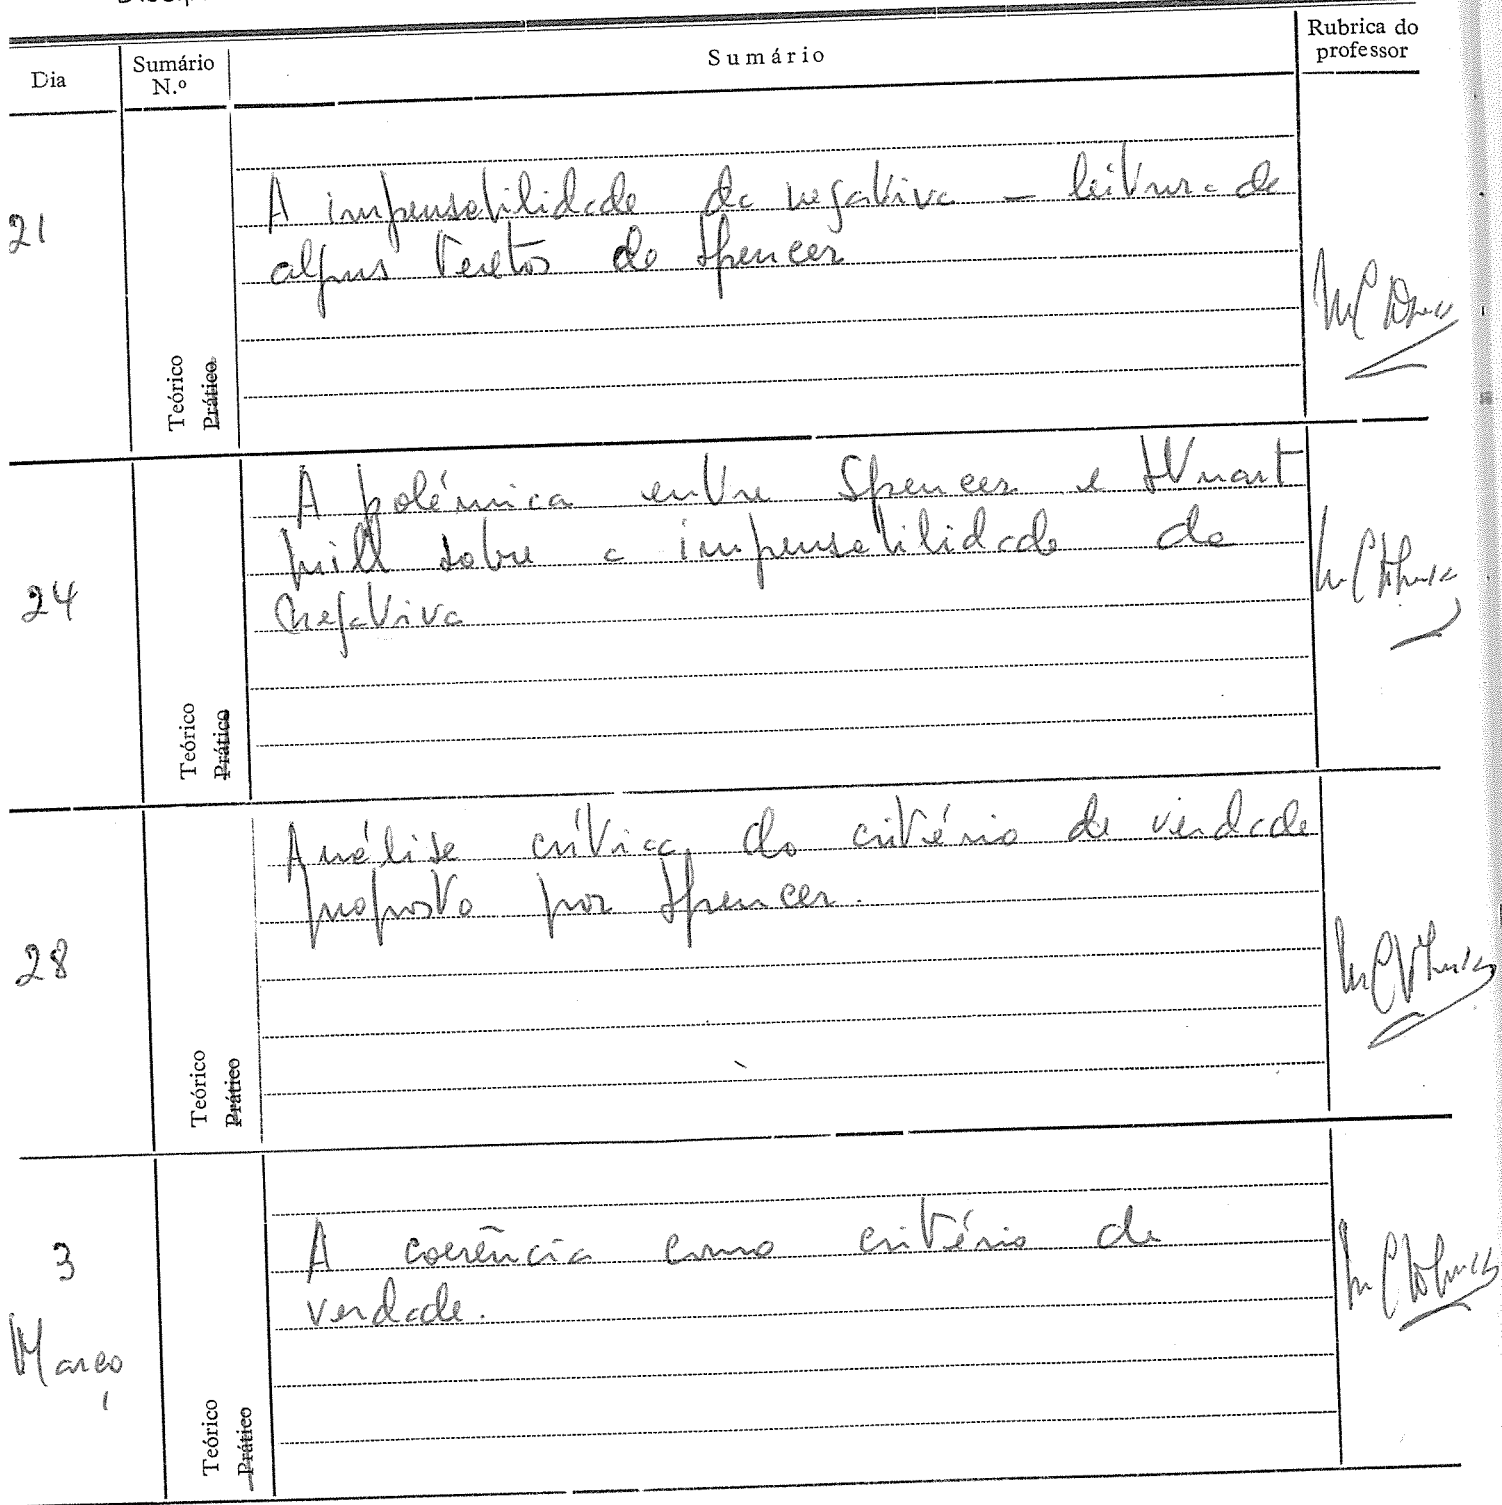 Dia
Sumário N.º
Sumário
Rubrica do professor
21
A impensabilidade da negativa – leitura de
alguns textos de Spencer
Teórico
Prático
24
A polémica entre Spencer e Stuart
Mill sobre a impensabilidade da
negativa
Teórico
Prático
28
Análise crítica do critério de verdade
proposto por Spencer.
Teórico
Prático
3
Março
A coerência como critério de
verdade.
Teórico
Prático